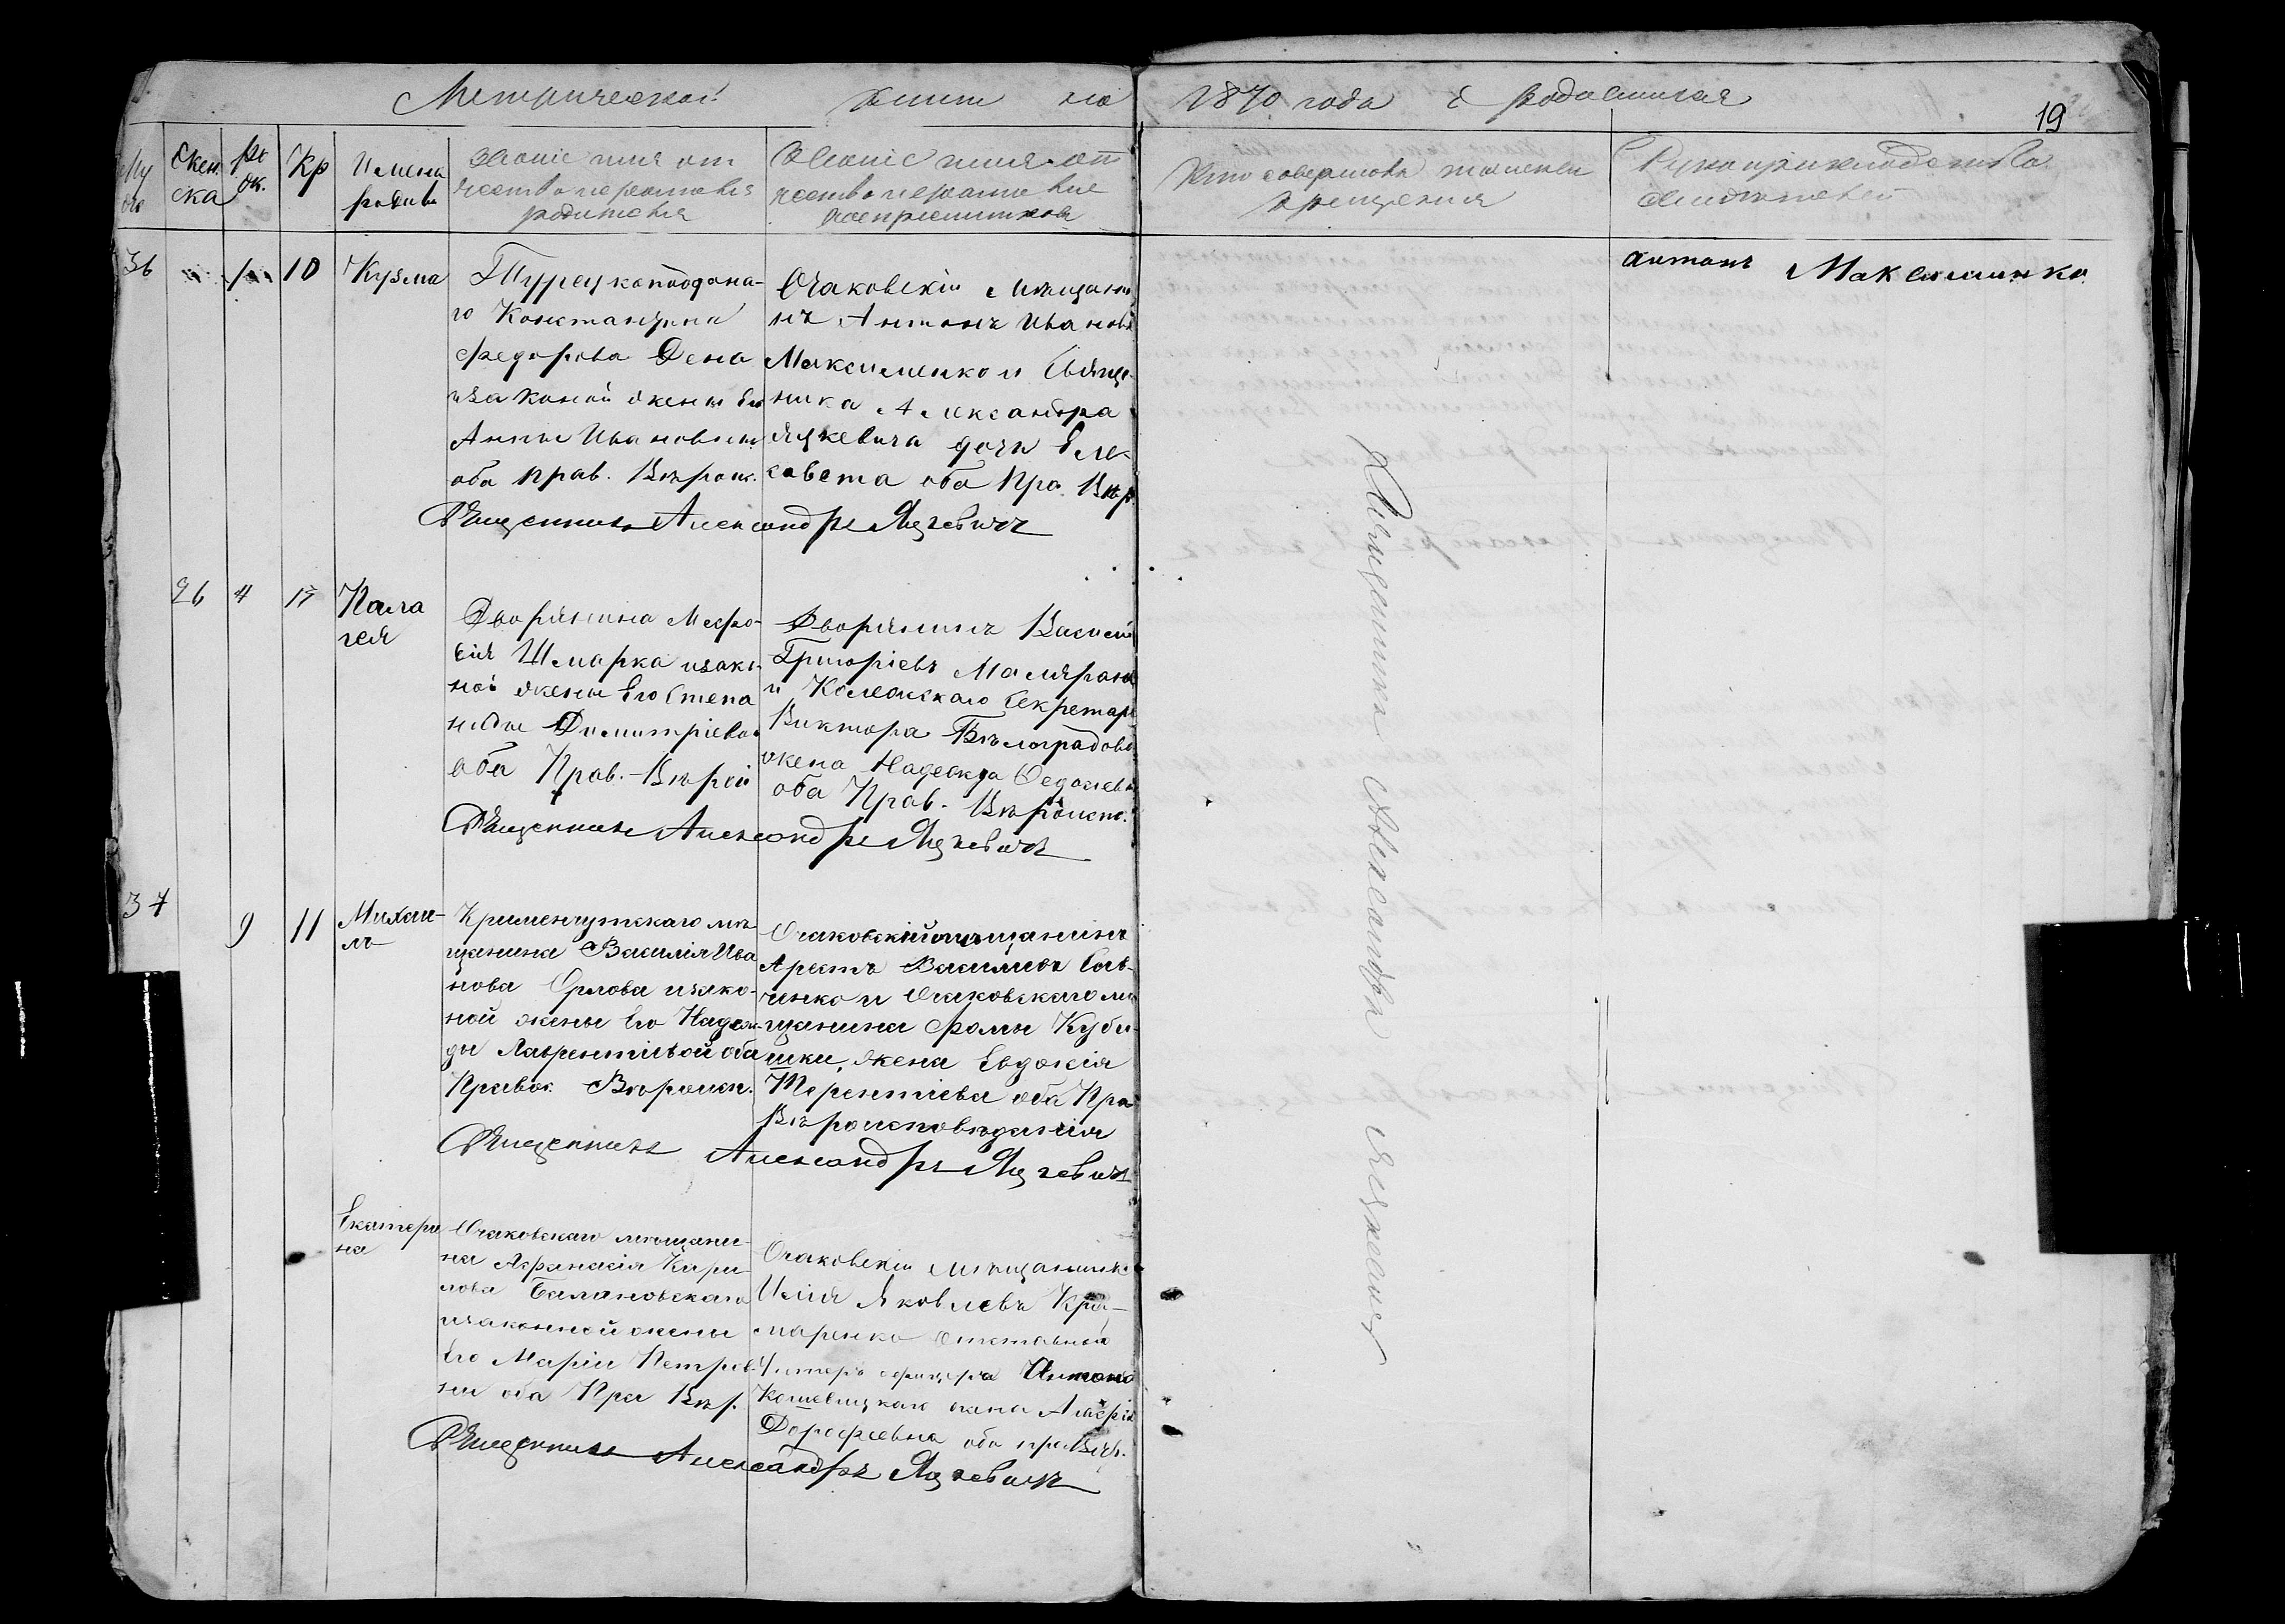 Метрической книги на 1870 года о родившихся
19
Му
ск.
Жен
ска
Ро
ж.
Кр
Имена
родив.
Званіе имя от
чество и фамилия
родителей
Званіе имя от
чество и фамилие
воспріемниковъ
Кто совершалъ таинство
крещения
Рукоприкладство
свидѣтелей
36
10
Кузьма
Турецкоподдана-
го Константина
Федорова Дена
изаконой жены Его
Анны Ивановны
оба прав. Вѣроис.
Очаковскій мѣщани
нъ Антонъ Ивановъ
Максименко и Свяще-
ника Александра
Яцкевича дочь Еле-
савета оба Пра. Вѣр.
Священникъ Александръ Яцкевичъ
Антонъ Максименко
26
4
15
Пала
гея
Дворянина Меѳо-
дія Шмарка изако-
ной жены Его Степа
ниды Димитріевой
оба Прав. Вѣрой
Дворянинъ Васили
Григоріевъ
и Колежскаго Секретаря
Виктора Бѣлоградова
жена Надежда
оба Прав. Вѣроисп.
Священникъ Александръ Яцкевичъ
37
9
11
Михаи-
лъ
Крименчугскаго мѣ
щанина Василія Ива
нова Орлова изако-
ной жены Его Надеж-
ды Лаврентіевой оба
Правос. Вѣроисп.
Очаковскій мѣщанинъ
Арестъ Васильевъ Сав-
ченко и Очаковскаго мѣ
щанина Фомы Куби-
шки, жена Евдокія
Терентіева оба Пра
Вѣроисповѣданія
Священникъ Александръ Яцкевичъ
Екатери
на
Очаковскаго мѣщани-
на Афанасія Кири-
лова Балановскаго
изаконной жены
Его Маріи Петров-
ны оба Пра Вѣр.
Очаковскій мѣщанинъ
Илия Яковлевъ Кра-
маренко Отставной
Унтеръ офицера Антона
жена
Дорофіевна оба пра Вѣр.
Священникъ Александръ Яцкевичъ
Священникъ Александръ Яцкевичъ